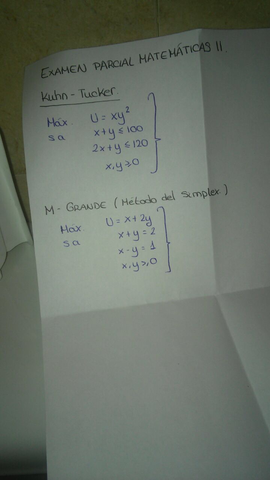 EXAMEN PARCIAL MATEMÁTICAS II
Kuhn-Tucker
Máx U = xy²
s a x+y ≤ 100
2x+y ≤ 120
x,y ≥ 0
M-GRANDE (Método del Simplex)
Max U = x+2y
s a x+y = 2
x-y = 1
x,y ≥ 0